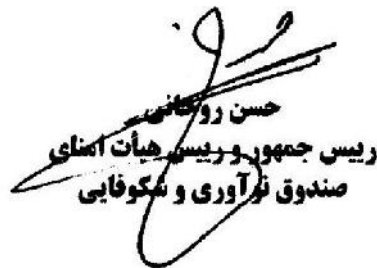 حسن روحانی
رییس جمهور و رییس هیأت امنای
صندوق نوآوری و شکوفایی